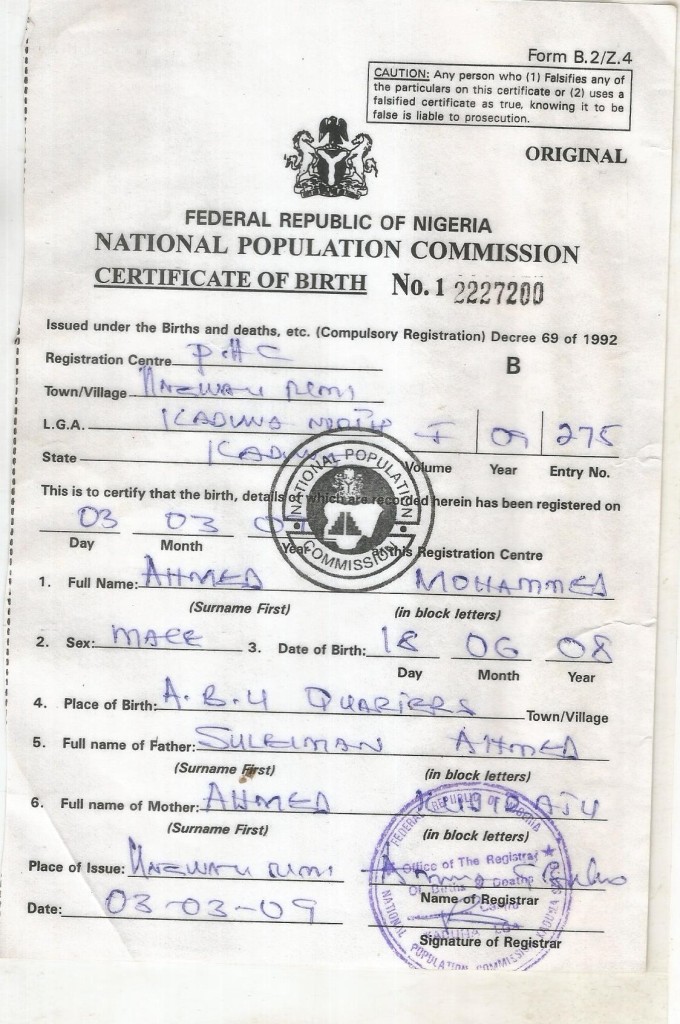 Form B.2/Z.4
CAUTION: Any person who (1) Falsifies any of
the particulars on this certificate or (2) uses a
falsified certificate as true, knowing it to be
false is liable to prosecution.
ORIGINAL
FEDERAL REPUBLIC OF NIGERIA
NATIONAL POPULATION COMMISSION
CERTIFICATE OF BIRTH No. 1 2227200
Issued under the Births and deaths, etc. (Compulsory Registration) Decree 69 of 1992
Registration Centre P.H.C B
Town/Village Rimi
L.G.A. KADUNA NORTH I 09 275
State KADUNA Volume Year Entry No.
This is to certify that the birth, details of which are recorded herein has been registered on
03 03
Day Month Year at this Registration Centre
1. Full Name: AHMED MOHAMMED
(Surname First) (in block letters)
2. Sex: MALE 3. Date of Birth: 18 06 08
Day Month Year
4. Place of Birth: A.B.U QUARTERS Town/Village
5. Full name of Father: SULEIMAN AHMED
(Surname First) (in block letters)
6. Full name of Mother: AHMED
(Surname First) (in block letters)
Place of Issue: Rimi
Name of Registrar
Date: 03-03-09
Signature of Registrar
NATIONAL POPULATION COMMISSION
FEDERAL REPUBLIC OF NIGERIA
Office of The Registrar
Of Births & Deaths
KADUNA LGA
NATIONAL POPULATION COMMISSION KADUNA